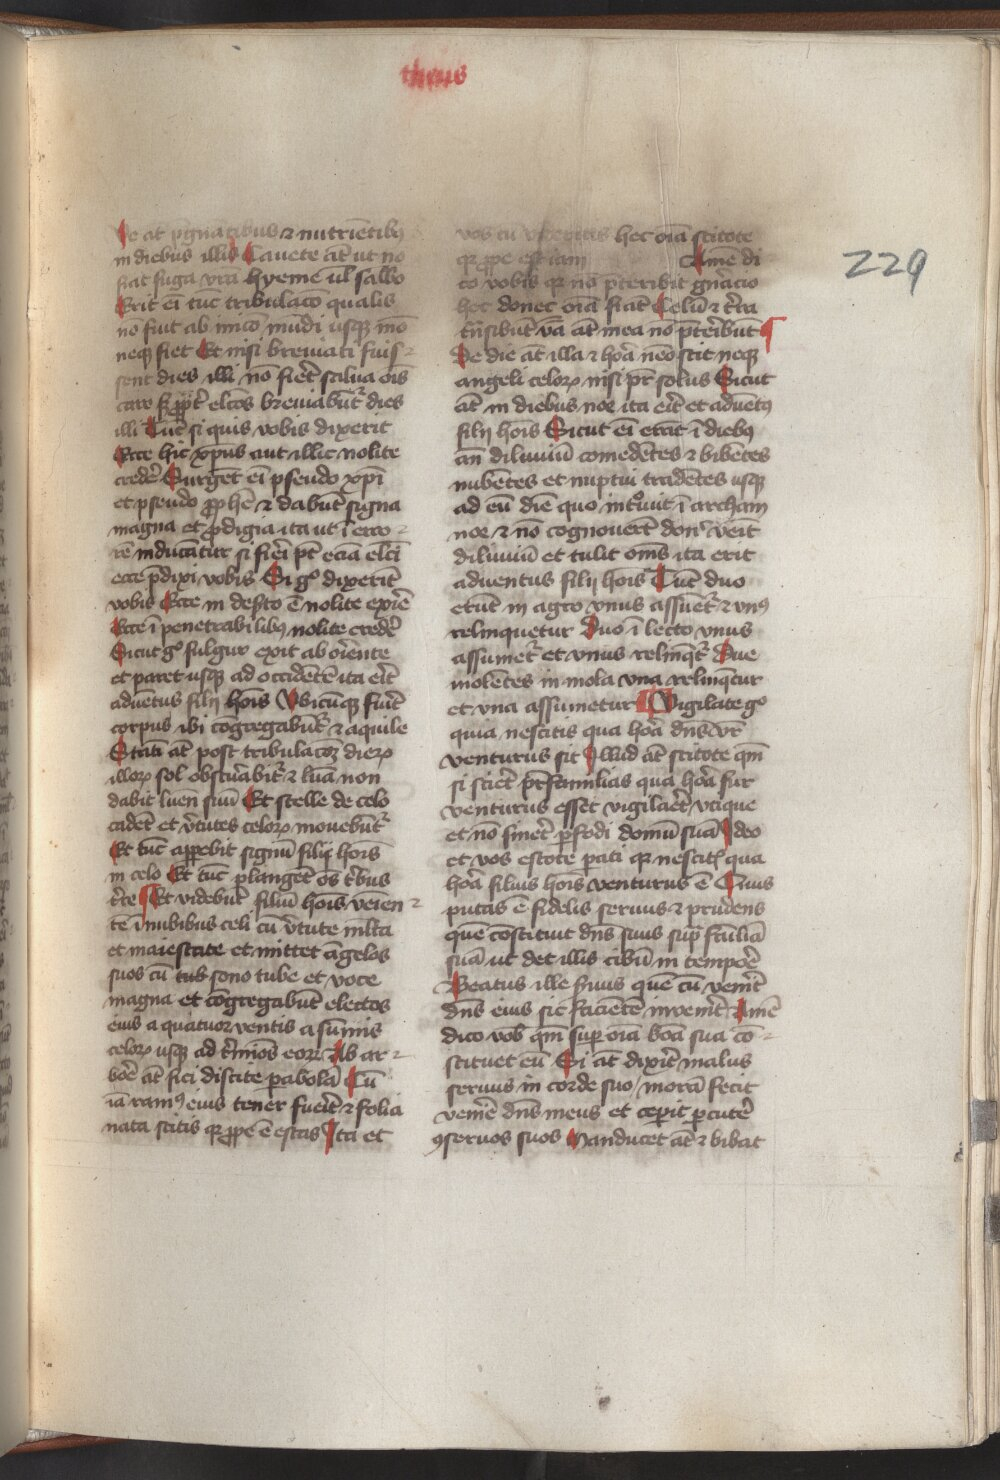 theus
229
Ve at̄ p̄gnātibus ⁊ nutriētibꝫ
in diebus illis Cauete at̄ ut no
fiat fuga vr̄a hyeme ul̄ sabbo
Erit ei tūc tribulac̄o qualis
no fuit ab inico mūdi usqꝫ mō
neqꝫ fiet Et nisi breuiati fuis-
sent dies illi nō fier̄t salua oīs
caro sꝫ ꝓpt̄ elc̄os breuiabūt᷑ dies
illi Tūc si quis vobis dixerit
Ecce hic xp̄us aut illic nolite
creder̄ Surget ei pseudo xp̄i
et pseudo ꝓphe ⁊ dabūt signa
magna et ꝓdigia ita ut ī erro-
rē inducātur si fieri pt̄ eciā elc̄i
ecce p̄dixi vobis Si gº dixerīt
vobis Ecce in des̄to ē nolite exire
Ecce ī penetrabilibꝫ nolite creder̄
Sicut gº fulgur exit ab oriente
et paret usqꝫ ad occidētē ita er̄t
aduētus filij hoīs Vbicūqꝫ fuīt
corpus ibi cōgregabūt᷑ ⁊ aquile
Stati at̄ post tribulacōꝫ dieꝝ
illoꝝ sol obscurabit᷑ ⁊ lūa non
dabit luen suū Et stelle de celo
cadēt et v̄tutes celoꝝ mouebūt᷑
Et tūc apparebit signū filij hoīs
in celo Et tūc plangēt oēs t̄bus
t̄re Et videbūt filiū hoīs venien-
tē ī nubibus celi cū v̄tute ml̄ta
et maiestate et mittet āgelos
suos cū tub sono tube et voce
magna et cōgregabūt electos
eius a quatuor ventis a sūmis
celoꝝ usqꝫ ad t̄mios eoꝝ Ab ar-
bore at̄ fici discite parabolā Cū
iā ramꝰ eius tener fuīt ⁊ folia
nata scitis qꝛ ꝓpe ē estas Ita et
vos cū videritis hec oīa scitote
qꝛ ꝓpe est iam Amē di
co vobis qꝛ nō p̄teribit gnacio
hec donec oīa fiāt Celū ⁊ t̄ra
trāsibūt v̄ba at̄ mea nō p̄teribūt
De die at̄ illa ⁊ hora nēo scit neqꝫ
angeli celoꝝ nisi pr̄ solus Sicut
at̄ in diebus noe ita erit et aduētꝰ
filij hoīs Sicut ei erāt ī diebꝫ
an̄ diluuiū comedētes ⁊ bibētes
nubētes et nuptui tradētes usqꝫ
ad eū diē quo intrauit ī archam
noe ⁊ nō cognouer̄t donc̄ veīt
diluuiū et tulit om̄s ita erit
aduentus filij hoīs Tūc duo
erūt in agro vnus assumet᷑ ⁊ vnꝰ
relinquetur Duo ī lecto vnus
assumet᷑ et vnus relinqt᷑ Due
molētes in mola vna relinqtur
et vna assumetur Vigilate gº
quia nescitis qua hora dn̄s vr̄
venturus sit Illud at̄ scitote qm̄
si scir̄t pr̄familias qua hora fur
venturus esset vigilar̄t vtique
et nō siner̄t perfodi domū suā Ideo
et vos estote pati qꝛ nescitis qua
hora filius hoīs venturus ē Quis
putas ē fidelis seruus ⁊ prudens
quē cōstituit dn̄s suus sup̄ familiā
suā ut det illis cibū in tempore
Beatus ille seruus quē cū venerit
dn̄s eius sic faciētē inuenerit Amē
dico vob̄ qm̄ super oīa bōa sua cō-
stituet eū Si at̄ dixerit malus
seruus in corde suo / morā fecit
venire dn̄s meus et ceperit percuter̄
ꝯseruos suos Manducet at̄ ⁊ bibat